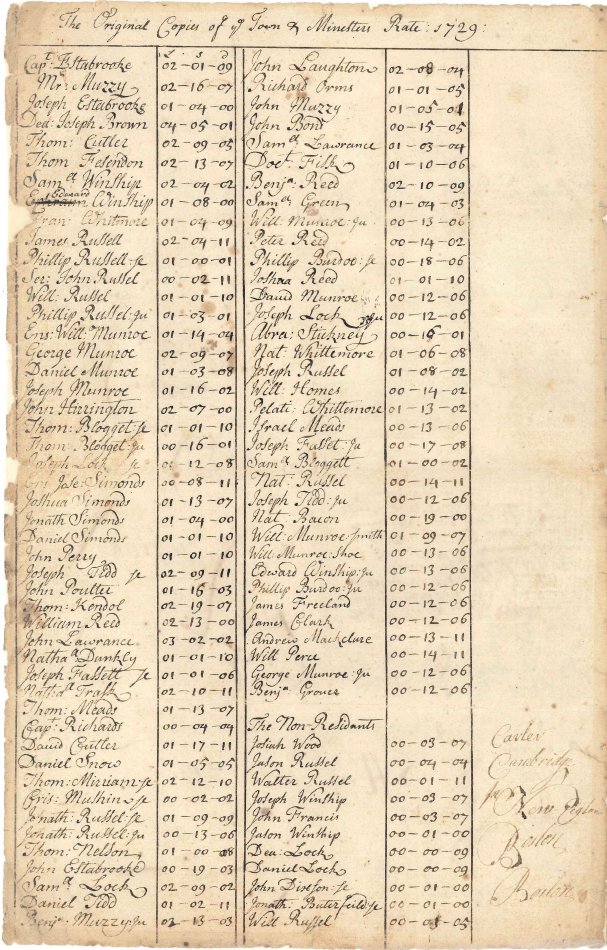 The Original Copies of yͤ Town & Ministers Rate: 1729:
L S d
Capᵗ Estabrooke 02-01-09
Mr: Muzzy 02-16-07
Joseph Estabrooke 01-04-00
Dea: Joseph Brown 04-05-01
Thom: Cutler 02-09-05
Thom Fesendon 02-13-07
Samˡˡ Winship 02-04-02
Edward
Ephraim Winship 01-08-00
Fran: Whitmore 01-04-09
James Russell 02-04-11
Phillip Russell: se 01-00-01
Ser: John Russel 00-02-11
Will: Russel 01-01-10
Phillip Russel: ju 01-03-01
Ens: Will: Munroe 01-14-04
George Munroe 02-09-07
Daniel Munroe 01-03-08
Joseph Munroe 01-16-02
John Hirrington 02-07-00
Thom: Blogget: se 01-01-10
Thom: Blogget: ju 00-16-01
Joseph Lock se 01-12-08
Jose: Simonds 00-08-11
Joshua Simonds 01-13-07
Jonath Simonds 01-04-00
Daniel Simonds 01-01-10
John Perry 01-01-10
Joseph Tidd se 02-09-11
John Poulter 01-16-03
Thom: Kendol 02-19-07
William Reed 02-13-00
John Lawrance 03-02-02
Nathaˡˡ Dunkly 01-01-10
Joseph Fassett se 01-01-06
Nathaˡˡ Trask 02-10-11
Thom: Meads 01-13-07
Capᵗ: Richards 00-04-04
David Cutler 01-17-11
Daniel Snow 01-05-05
Thom: Mirriam: se 02-12-10
Cris: Mushin: se 00-02-02
Jonath: Russel: se 01-09-09
Jonath: Russel: ju 00-13-06
Thom: Nelson 01-00-08
John Estabrooke 00-19-03
Samˡˡ Lock 02-09-02
Daniel Tidd 01-02-11
Benjᵃ Muzzy: ju 03-13-03
John Laughton 02-08-04
Richard Orms 01-01-05
John Muzzy 01-05-01
John Bond 00-15-05
Samˡˡ Lawrance 01-03-04
Docᵗ. Fisk 01-10-06
Benjᵃ: Reed 02-10-09
Samˡˡ Green 01-04-03
Will: Munroe: ju 00-13-06
Peter Reed 00-14-02
Phillip Burdoo: se 00-18-06
Joshua Reed 01-01-10
David Munroe 00-12-06
Joseph Lock ju 00-12-06
Abra: Stickney 00-16-01
Nat: Whittemore 01-06-08
Joseph Russel 01-08-02
Will: Homes 00-14-02
Pelati: Whittemore 01-13-02
Israel Meads 00-13-06
Joseph Fasset: ju 00-17-08
Samˡˡ Bloggett 01-00-02
Nat: Russel 00-14-11
Joseph Tidd: ju 00-12-06
Nat: Bacon 00-19-00
Will: Munroe: smith 01-09-07
Will: Munroe: shoe 00-13-06
Edward Winship: ju 00-13-06
Phillip Burdoo: ju 00-12-06
James Freeland 00-12-06
James Clark 00-12-06
Andrew Mackclure 00-13-11
Will Perce 00-14-11
George Munroe: ju 00-12-06
Benjᵃ. Grover 00-12-06
The Non-Residants
Josiah Wood 00-03-07
Jason Russel 00-04-04 Cambridge
Walter Russel 00-01-11
Joseph Winship 00-03-07
John Francis 00-03-07
Jason Winship 00-01-00
Dea: Lock 00-00-09
Daniel Lock 00-00-09
John Direson: se 00-01-00
Jonath: Buterfeild: se 00-01-00
Will Russel 00-01-05